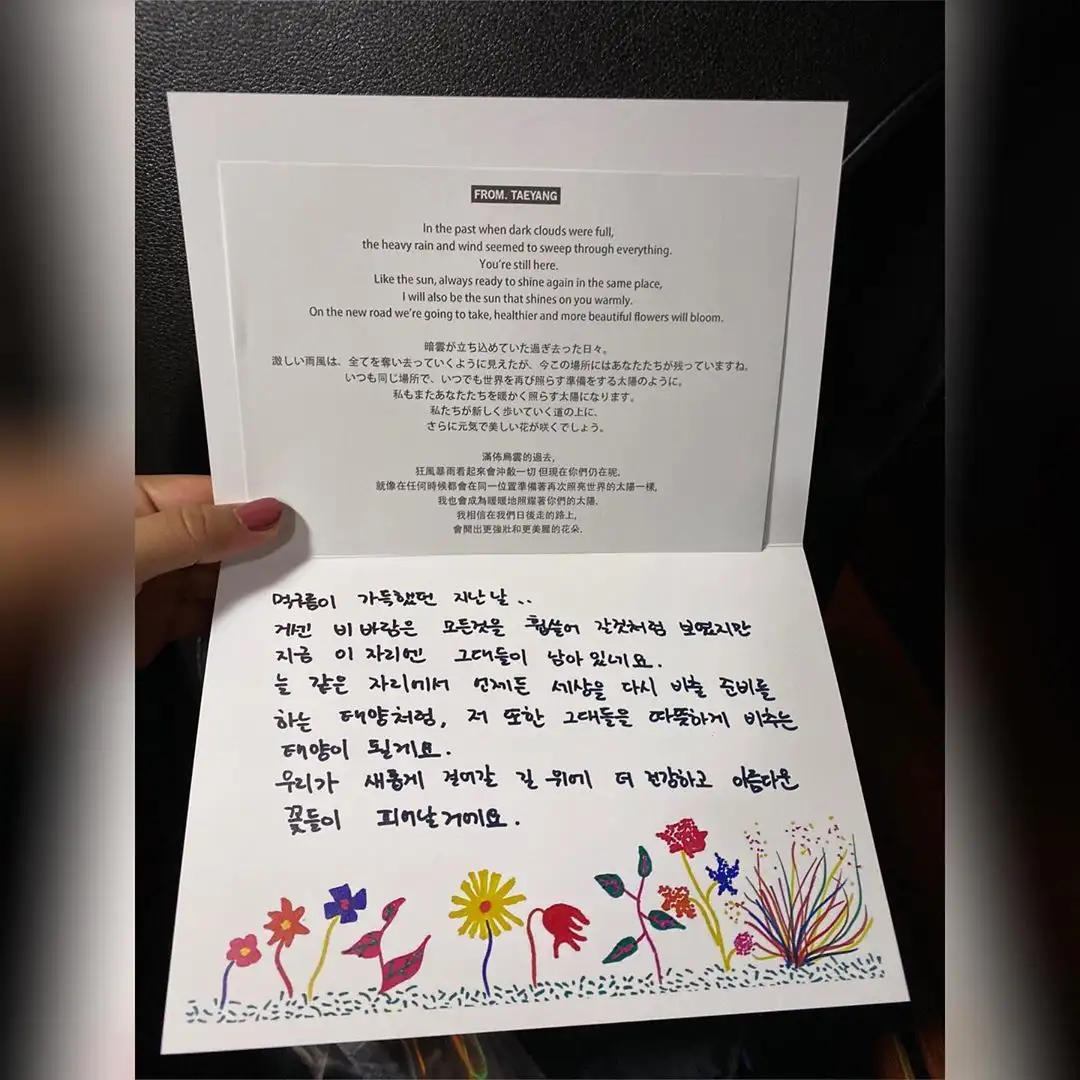 FROM. TAEYANG
In the past when dark clouds were full,
the heavy rain and wind seemed to sweep through everything.
You're still here.
Like the sun, always ready to shine again in the same place,
I will also be the sun that shines on you warmly.
On the new road we're going to take, healthier and more beautiful flowers will bloom.
暗雲が立ち込めていた過ぎ去った日々。
激しい雨風は、全てを奪い去っていくように見えたが、今この場所にはあなたたちが残っていますね。
いつも同じ場所で、いつでも世界を再び照らす準備をする太陽のように。
私もまたあなたたちを暖かく照らす太陽になります。
私たちが新しく歩いていく道の上に、
さらに元気で美しい花が咲くでしょう。
滿佈烏雲的過去,
狂風暴雨看起來會沖散一切 但現在你們仍在呢.
就像在任何時候都會在同一位置準備著再次照亮世界的太陽一樣,
我也會成為暖暖地照耀著你們的太陽.
我相信在我們日後走的路上,
會開出更強壯和更美麗的花朵.
먹구름이 가득했던 지난날..
거센 비바람은 모든것을 휩쓸어 갈것처럼 보였지만
지금 이 자리엔 그대들이 남아있네요.
늘 같은 자리에서 언제든 세상을 다시 비출 준비를
하는 태양처럼, 저 또한 그대들을 따뜻하게 비추는
태양이 될게요.
우리가 새롭게 걸어갈 길 위에 더 건강하고 아름다운
꽃들이 피어날거에요.